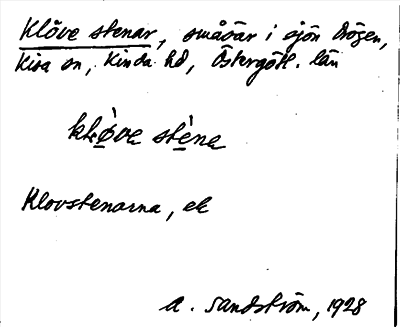 Klöve stenar, småöar i sjön Drögen,
Kisa sn, Kinda hd, Östergötl. län
klø̀ve stène
Klovstenarna, ek
A. Sandström, 1928